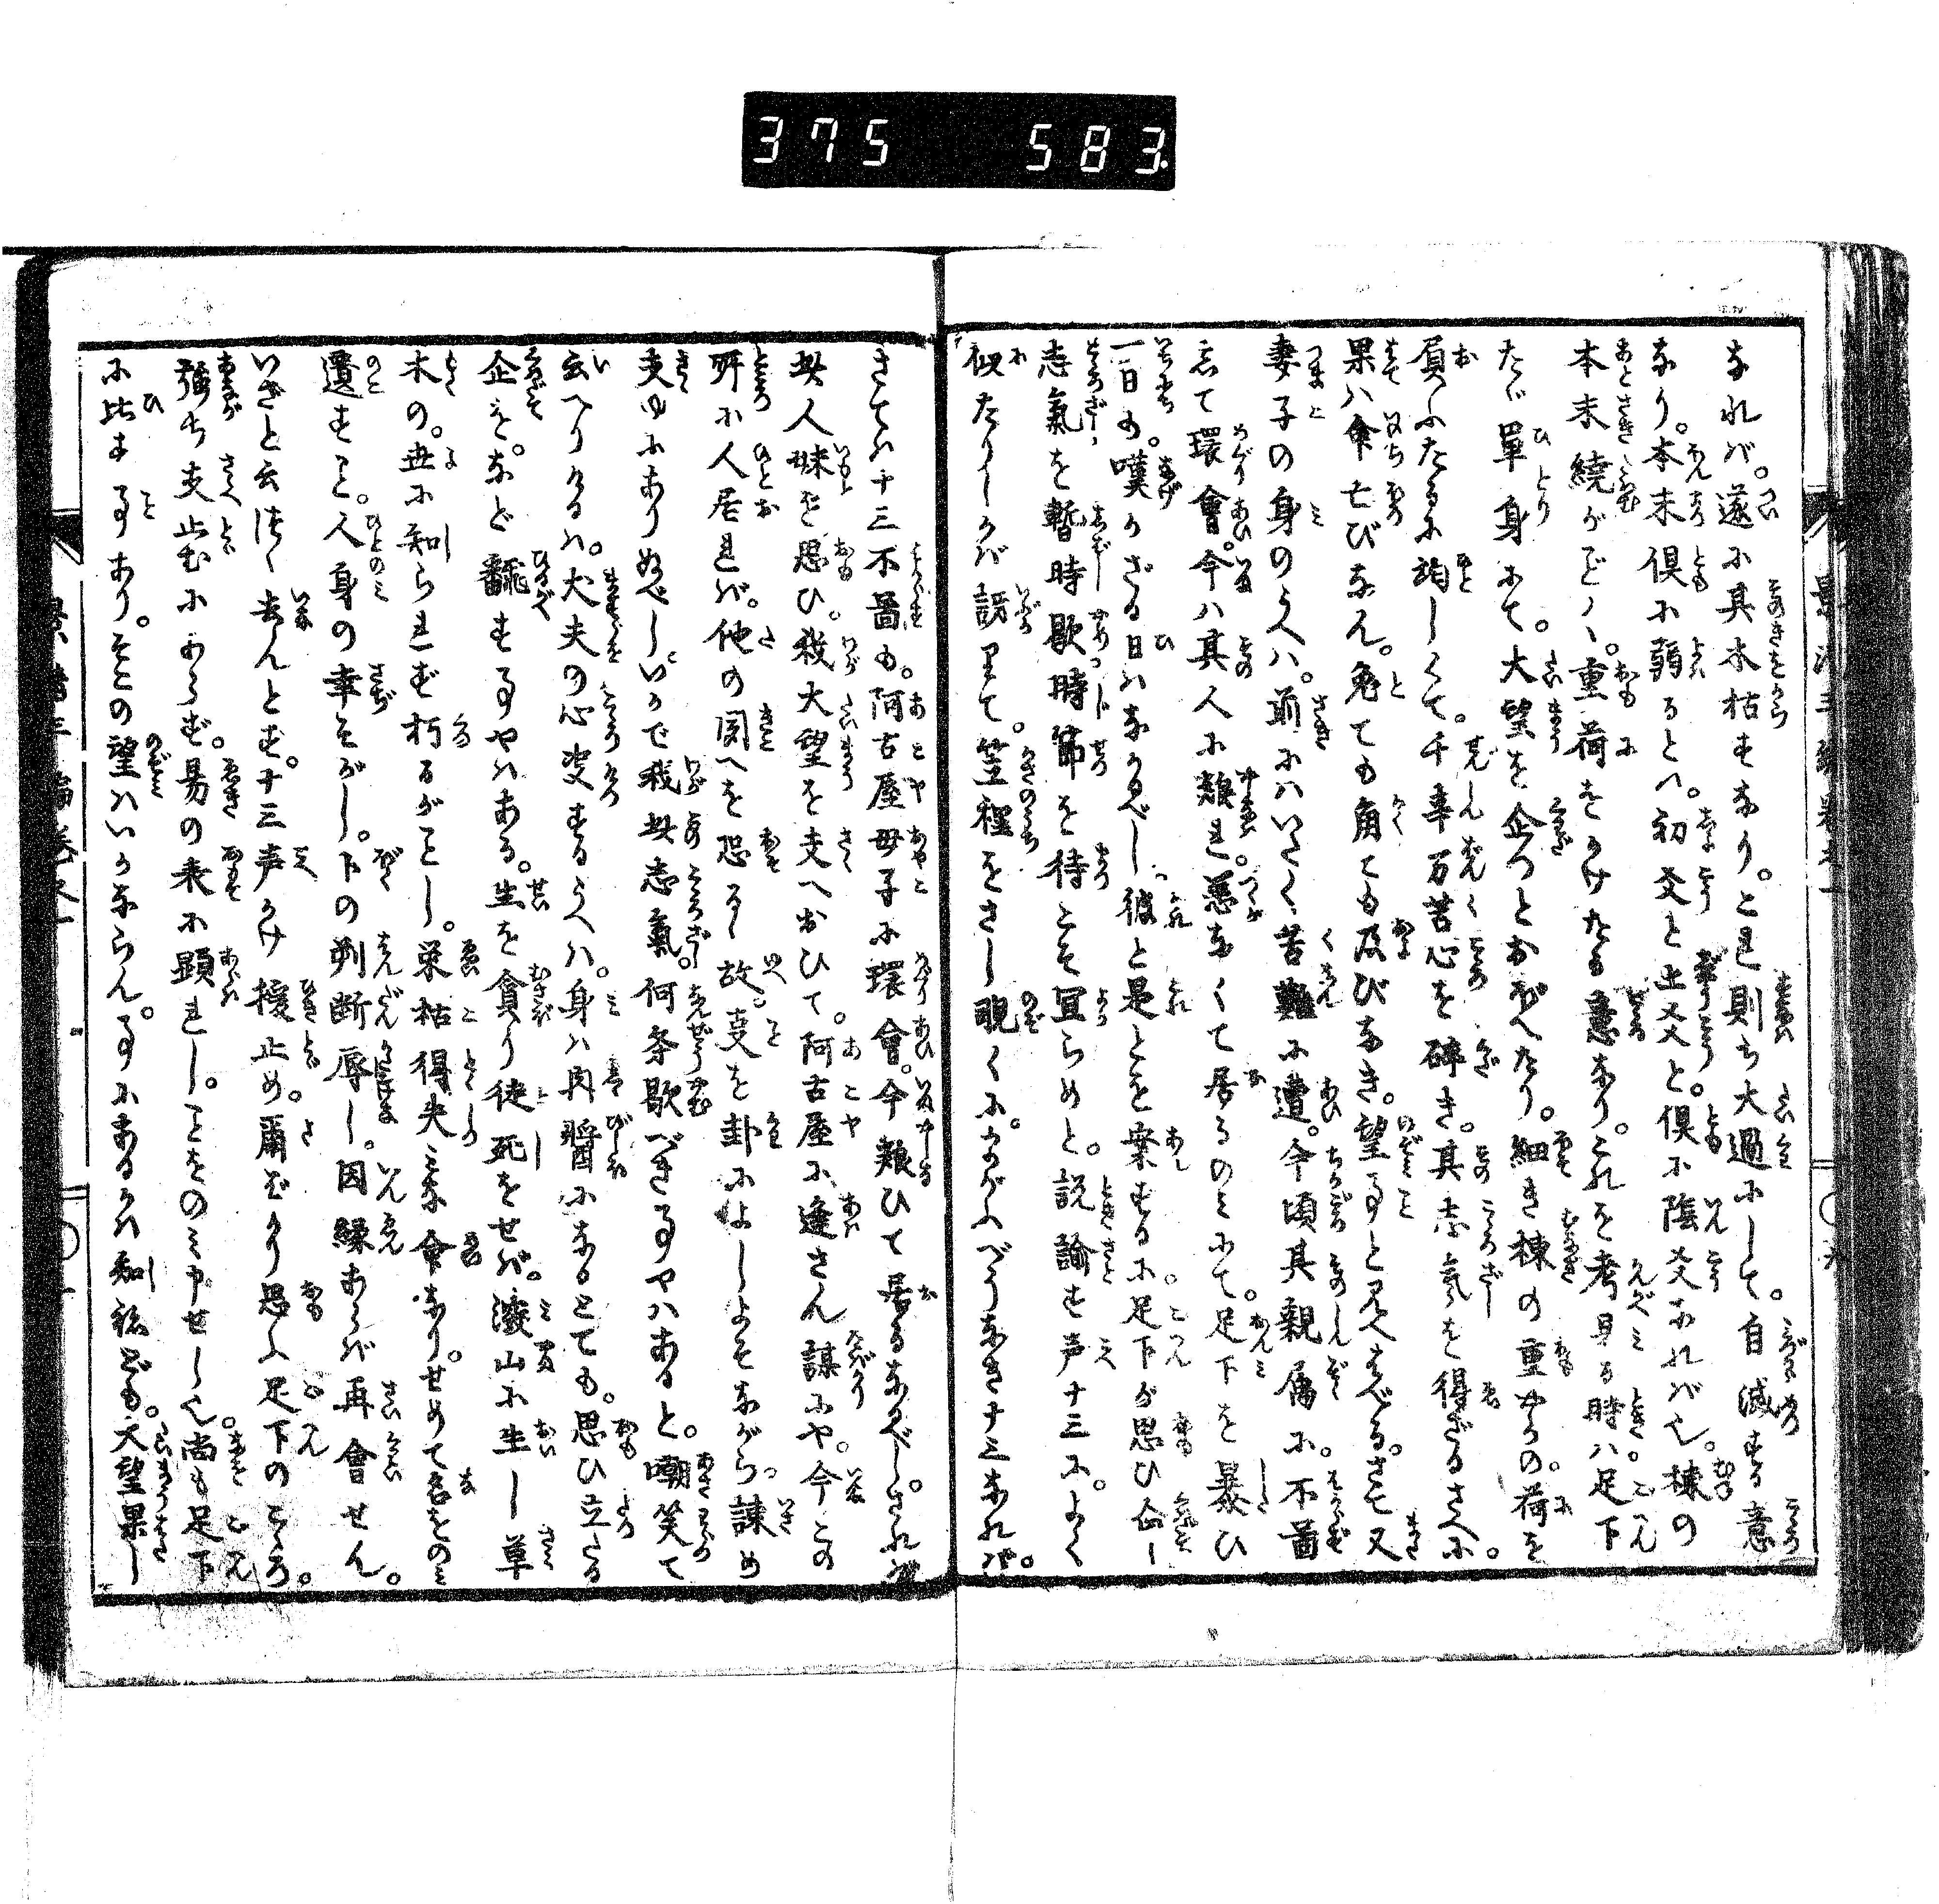 375 583
なれバ。遂に其木枯すなり。これ則ち大過にして。自滅する意
なり。本末倶に弱るとハ。初爻と上爻と。倶に陰爻なれバ也。棟の
本末繞がごとく。重荷をかけたる意なり。これを考見る時ハ足下
たゞ單身にて。大望を企つとおぼへたり。細き棟の重やかの。荷を
負ふたるに均しくて。千辛万苦心を碎き。其志氣を得ざるさへに。
果ハ命亡びなん。兔ても角ても及びなき。望事と見へはべる。さて又
妻子の身のうへハ。前にハいたく苦難に遭。今頃其親屬に。不圖
して環會。今ハ其人に類れ。恙なくて居るのミにて。足下を暴ひ
一日も。嘆かざる日ハなかるべし。彼と是とを案ずるに。足下が思ひ企し
志氣を暫時歇時節を待こそ宜らめと。説諭す声十三に。よく
似たりしかバ訝りて。笠裡をさし覗くに。うたがふべうなき十三なれバ。
さてハ十三不圖も。阿古屋母子に環會。今類ひて居るなるべし。されバ
此人妹を思ひ。我大望を支へおひて。阿古屋に逢さん謀にや。今この
所に人居れバ。他の聞へを恐るゝ故。支を卦によしよそながら。諫め
支ゆにありぬべし。いかで我此志氣。何条歇べき事やハあると。嘲笑て
云へりけるハ。大夫の心变するうへハ。身ハ肉醤になるとても。思ひ立たる
企を。など飜す事やハある。生を貪り徒死をせバ。深山に生し草
木の。世に知られず朽るがごとし。栄枯得失ミな命なり。せめて名をのミ
遺すこと。人身の幸ぞかし。下の判断辱し。因縁あらバ再會せん。
いざと云つゝ去んとす。十三声かけ援止め。爾ばかり思ふ足下のこゝろ。
強ち支止むにあらず。易の表に顕れし。ことをのミ申せし也。尚も足下
に比す事あり。そこの望ハいかならん。事にあるかハ知ねども。大望果し